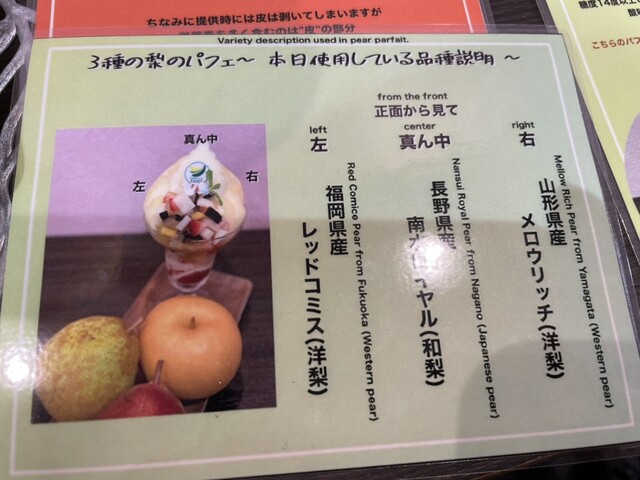 ちなみに提供時には皮は剥いてしまいますが
糖度14度以上
こちらのパフ
Variety description used in pear parfait.
3種の梨のパフェ〜 本日使用している品種説明 〜
from the front
正面から見て
left
左
center
真ん中
right
右
真ん中
左
右
Red Comice Pear from Fukuoka (Western pear)
福岡県産
レッドコミス(洋梨)
Nansui Royal Pear from Nagano (Japanese pear)
長野県産
南水ロイヤル(和梨)
Mellow Rich Pear from Yamagata (Western pear)
山形県産
メロウリッチ(洋梨)